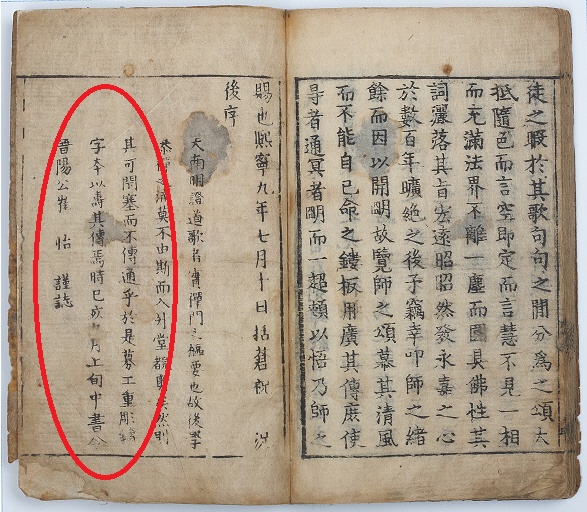 徒之暇於其歌句句之閒分爲之頌大
抵隨色而言空即定而言慧不見一相
而充滿法界不離一塵而圓具佛性其
詞灑落其旨宏遠昭昭然發永嘉之心
於數百年曠絶之後予竊幸叩師之緒
餘而因以開明故覽師之頌慕其清風
而不能自已命之鏤板用廣其傳庶使
㝵者通冥者明而一超頓以悟乃師之
賜也熙寧九年七月十日括蒼祝 况
後序
夫南明證道歌者實禪門之樞要也故後學
禪之流莫不由斯而入升堂覩奧矣然則
其可閉塞而不傳通乎於是募工重彫鑄
字本以壽其傳焉時己亥月上旬中書令
晉陽公崔 怡 謹誌